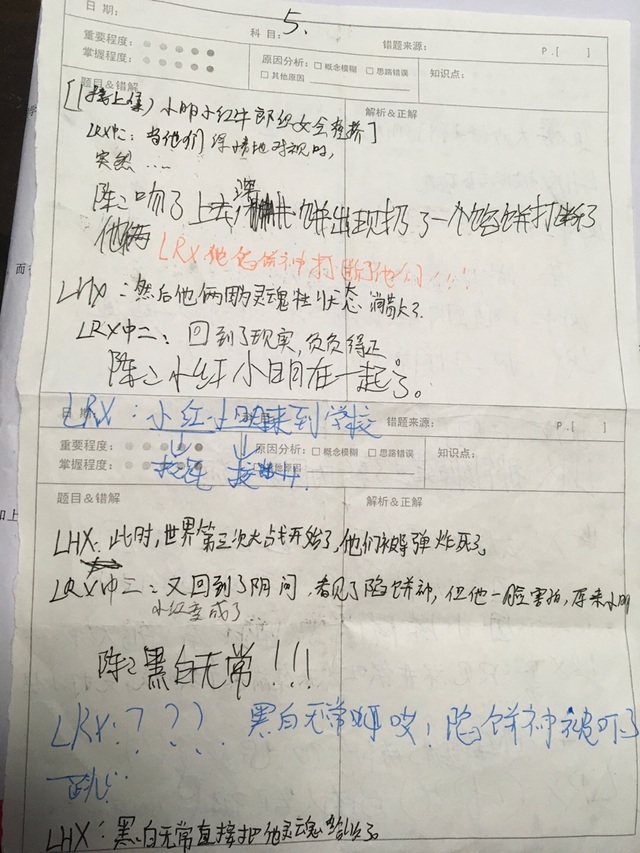 日期:
5.
科目:
错题来源:
P.[ ]
重要程度:
掌握程度:
原因分析: □概念模糊 □思路错误
□其他原因
知识点:
题目&错解
解析&正解
[(接上集) 小明小红牛郎织女会鹊桥]
LRX中二:当他们深情地对视时,
突然....
陈:吻了上去 馅饼出现扔了一个馅饼打断了
他俩
LRX他馅饼神打断了他们!!!
LHX:然后他俩因为灵魂 状态消散了.
LRX中二:回到了现实,负负得正。
陈:小红小明在一起了。
LRX:小红小明来到学校
日期:
科目:
错题来源:
P.[ ]
重要程度:
掌握程度:
原因分析: □概念模糊 □思路错误
其他原因
知识点:
题目&错解
解析&正解
LHX:此时,世界第三次大战开始了,他们被导弹炸死了
LRX中二:又回到了阴间,看见了陷饼神,但他一脸害怕,原来小明
小红变成了
陈:黑白无常!!!
LRX:??? 黑白无常 !陷饼神被吓了
一 
LHX:黑白无常直接把他灵魂给 了.